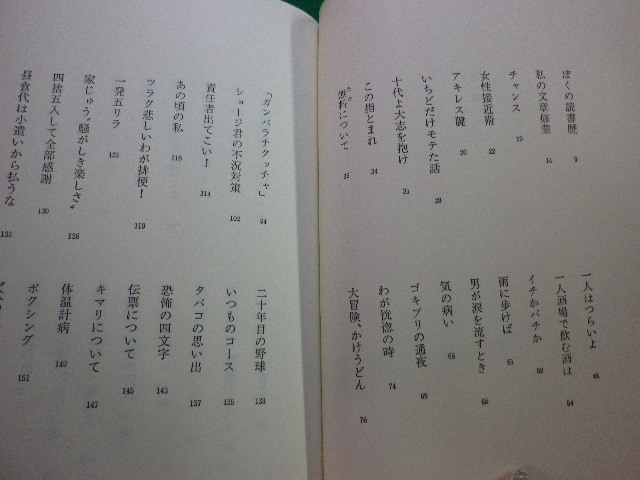 ぼくの読書歴 9
私の文章修業 14
チャンス 19
女性接近術 22
アキレス腱 26
いちどだけモテた話
十代よ大志を抱け
この指とまれ
について
一人はつらいよ
一人酒場で飲む酒は 54
イチかバチか 58
雨に歩けば 61
男が涙を流すとき
気の病い
ゴキブリの通夜 69
わが恍惚の時 74
大冒険、かけうどん 76
「ガンバラナクッチャ」 94
ショージ君の不況対策 102
責任者出てこい! 114
あの頃の私 116
ツラク悲しいわが排便! 119
一発五リラ 122
家じゅう〝騒がしき楽しさ〟 126
四捨五入して全部感謝 130
昼食代は小遣いから払うな 132
二十年目の野球 133
いつものコース 135
タバコの思い出 137
恐怖の四文字 143
伝票について 145
キマリについて 147
体温計病 149
ボクシング 151